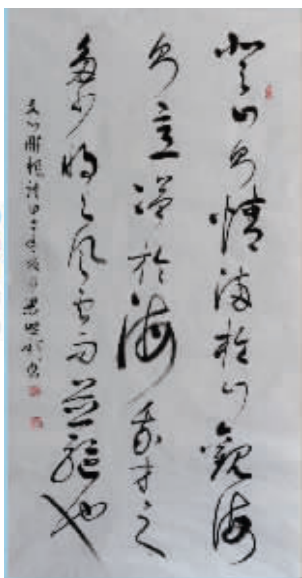 登山則情滿於山觀海
則意溢於海我才之
多少將與風雲而並驅也
文心雕龍